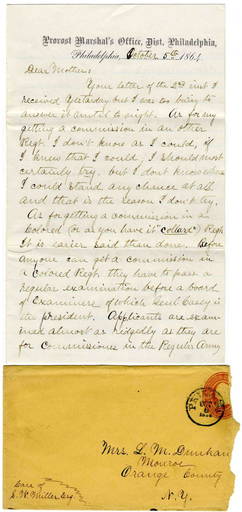 Provost Marshal's Office, Dist. Philadelphia,
Philadelphia, October 5th 1864
Dear Mother:
Your letter of the 2nd inst I
received yesterday but I was too busy to
answer it until to night. As for my
getting a commission in an other
Regt. I don't know as I could, if
I knew that I could, I should most
certainly try. but I dont know where
I could stand any chance at all
and that is the reason I don't try.
As for getting a commission in a
Colored (or as you have it "collard") Regt.
It is easier said than done. Before
anyone can get a commission in
a colored Regt. they have to pass a
regular examination before a board
of Examiners of which Genl Casey is
the president. Applicants are exam-
ined almost as ridgedly as they are
for commissions in the Regular Army
Mrs. L. M. Dunham
Monroe
Orange County
N.Y.
Care of
S. W. Miller, Esq